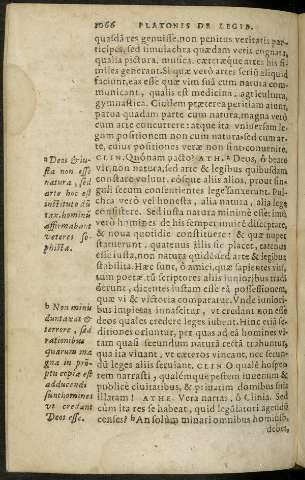 1066 PLATONIS DE LEGIB.
quasdā res genuisse, non penitus veritatis participes,
sed simulachra quædam veris cognata,
qualia pictura, musica, cæteræque artes his similes
generant. Si quæ verò artes seriū aliquid
faciunt, eas esse quæ vim suā cum natura communicant,
qualis est medicina, agricultura,
gymnastica. Ciuilem prætereà peritiam aiunt,
parua quadam parte cum natura, magna verò
cum arte concurrere: atque ita vniuersam legum
positionem non cum natura, sed cum arte,
cuius positiones veræ non sint, conuenire.
CLIN. Quónam pacto? ATH. a Deos, ô beate
vir, non natura, sed arte & legibus quibusdam
constare volunt, eósque alios aliis, prout singuli
secum consentientes lege sanxerunt. Pulchra
verò vel honesta, alia natura, alia lege
consistere. Sed iusta natura minimè esse: imò
verò homines de his semper inuicē disceptare,
& noua quotidie constituere: & quæ nuper
statuerunt, quatenus illis sic placet, eatenus
esse iusta, non natura quidē, sed arte & legibus
stabilita. Hæc sunt, ô amici, quæ sapientes viri,
tum poetæ, tū scriptores aliis iunioribus tradiderunt,
dicentes iustam esse eā possessionem,
quæ vi & victoria comparatur. Vnde iunioribus
impietas innascitur, vt credant non esse
deos quales credere leges iubent. Hinc etiā seditiones
oriuntur, per quas ad eā homines vitam
quasi secundum natura rectā trahuntur,
qua ita viuant, vt cæteros vincant, nec secundū
leges aliis seruiant. CLIN. O qualē hospes
rem narrasti, qualémque pestem iuuenum &
publicè ciuitatibus, & priuatim domibus suis
illatam! ATH. Vera narras, ô Clinia. Sed
cùm ita res se habeat, quid legūlatori agendū
censes? b An solùm minari omnibus hominib.
debet,
a Deos & iusta
non esse
natura, sed
arte hoc est
instituto dūtax.
hominū
affirmabant
veteres sophistæ.
b Non minis
duntaxat &
terrere, sed
rationibus
quarum magna
in prōptu
copia est
adducendi
sunt homines
vt credant
Deos esse.